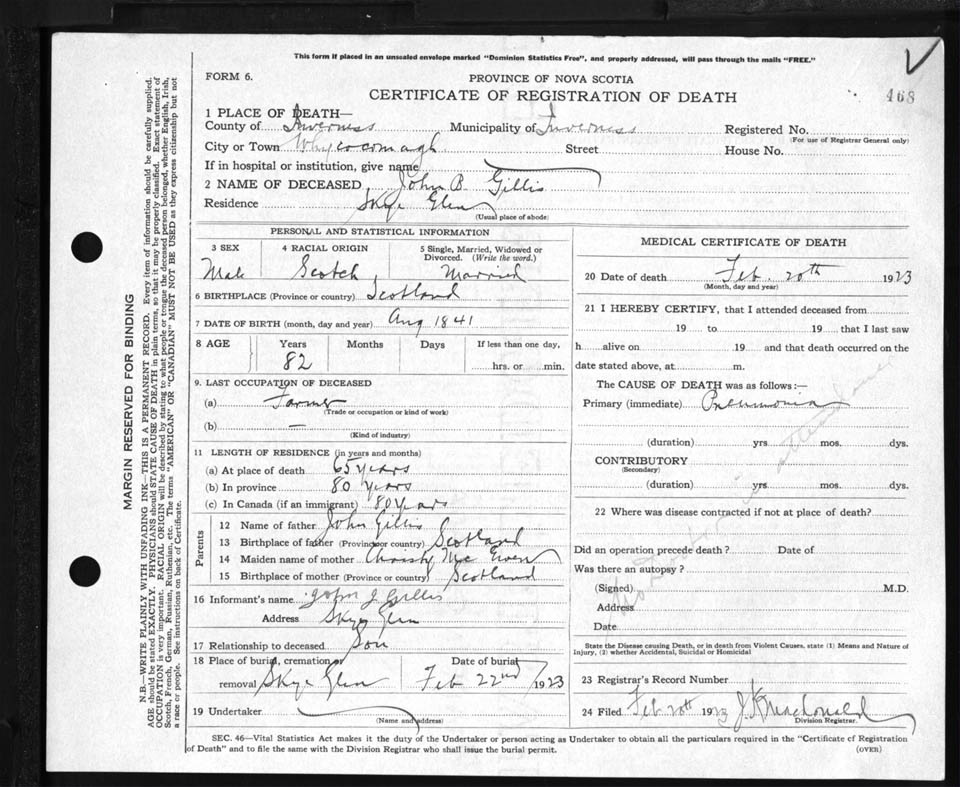 This form if placed in an unsealed envelope marked "Dominion Statistics Free", and properly addressed, will pass through the mails "FREE."
FORM 6.
PROVINCE OF NOVA SCOTIA
CERTIFICATE OF REGISTRATION OF DEATH
468
1 PLACE OF DEATH—
County of Inverness Municipality of Inverness Registered No.
(For use of Registrar General only)
City or Town Whycocomagh Street House No.
If in hospital or institution, give name
2 NAME OF DECEASED John B Gillis
Residence Skye Glen
(Usual place of abode)
PERSONAL AND STATISTICAL INFORMATION
3 SEX 4 RACIAL ORIGIN 5 Single, Married, Widowed or Divorced. (Write the word.)
Male Scotch Married
6 BIRTHPLACE (Province or country) Scotland
7 DATE OF BIRTH (month, day and year) Aug 1841
8 AGE Years Months Days If less than one day,
82 hrs. or min.
9. LAST OCCUPATION OF DECEASED
(a) Farmer
(Trade or occupation or kind of work)
(b) —
(Kind of industry)
11 LENGTH OF RESIDENCE (in years and months)
(a) At place of death 65 years
(b) In province 80 years
(c) In Canada (if an immigrant) 80 years
Parents
12 Name of father John Gillis
13 Birthplace of father (Province or country) Scotland
14 Maiden name of mother Christy Mc Ewen
15 Birthplace of mother (Province or country) Scotland
16 Informant's name John J Gillis
Address Skye Glen
17 Relationship to deceased Son
18 Place of burial, cremation or removal Skye Glen Date of burial Feb 22nd 1923
19 Undertaker
(Name and address)
MEDICAL CERTIFICATE OF DEATH
20 Date of death Feb. 20th 1923
(Month, day and year)
21 I HEREBY CERTIFY, that I attended deceased from
19 to 19 that I last saw
h alive on 19 and that death occurred on the
date stated above, at m.
The CAUSE OF DEATH was as follows:—
Primary (immediate) Pneumonia
(duration) yrs. mos. dys.
CONTRIBUTORY
(Secondary)
(duration) yrs. mos. dys.
22 Where was disease contracted if not at place of death?
Did an operation precede death? Date of
Was there an autopsy?
(Signed) M.D.
Address
Date
No in attendance
State the Disease causing Death, or in death from Violent Causes, state (1) Means and Nature of
Injury, (2) whether Accidental, Suicidal or Homicidal
23 Registrar's Record Number
24 Filed Feb 20th 1923 J. K Macdonald
Division Registrar.
SEC. 46—Vital Statistics Act makes it the duty of the Undertaker or person acting as Undertaker to obtain all the particulars required in the "Certificate of Registration
of Death" and to file the same with the Division Registrar who shall issue the burial permit.
(OVER)
MARGIN RESERVED FOR BINDING
N.B.—WRITE PLAINLY WITH UNFADING INK—THIS IS A PERMANENT RECORD. Every item of information should be carefully supplied.
AGE should be stated EXACTLY. PHYSICIANS should STATE CAUSE OF DEATH in plain terms, so that it may be properly classified. Exact statement of
OCCUPATION is very important. RACIAL ORIGIN will be described by stating to what people or tongue the deceased person belonged, whether English, Irish,
Scotch, French, German, Russian, Ruthenian, etc. The terms "AMERICAN" OR "CANADIAN" MUST NOT BE USED as they express citizenship but not
a race or people. See instructions on back of Certificate.